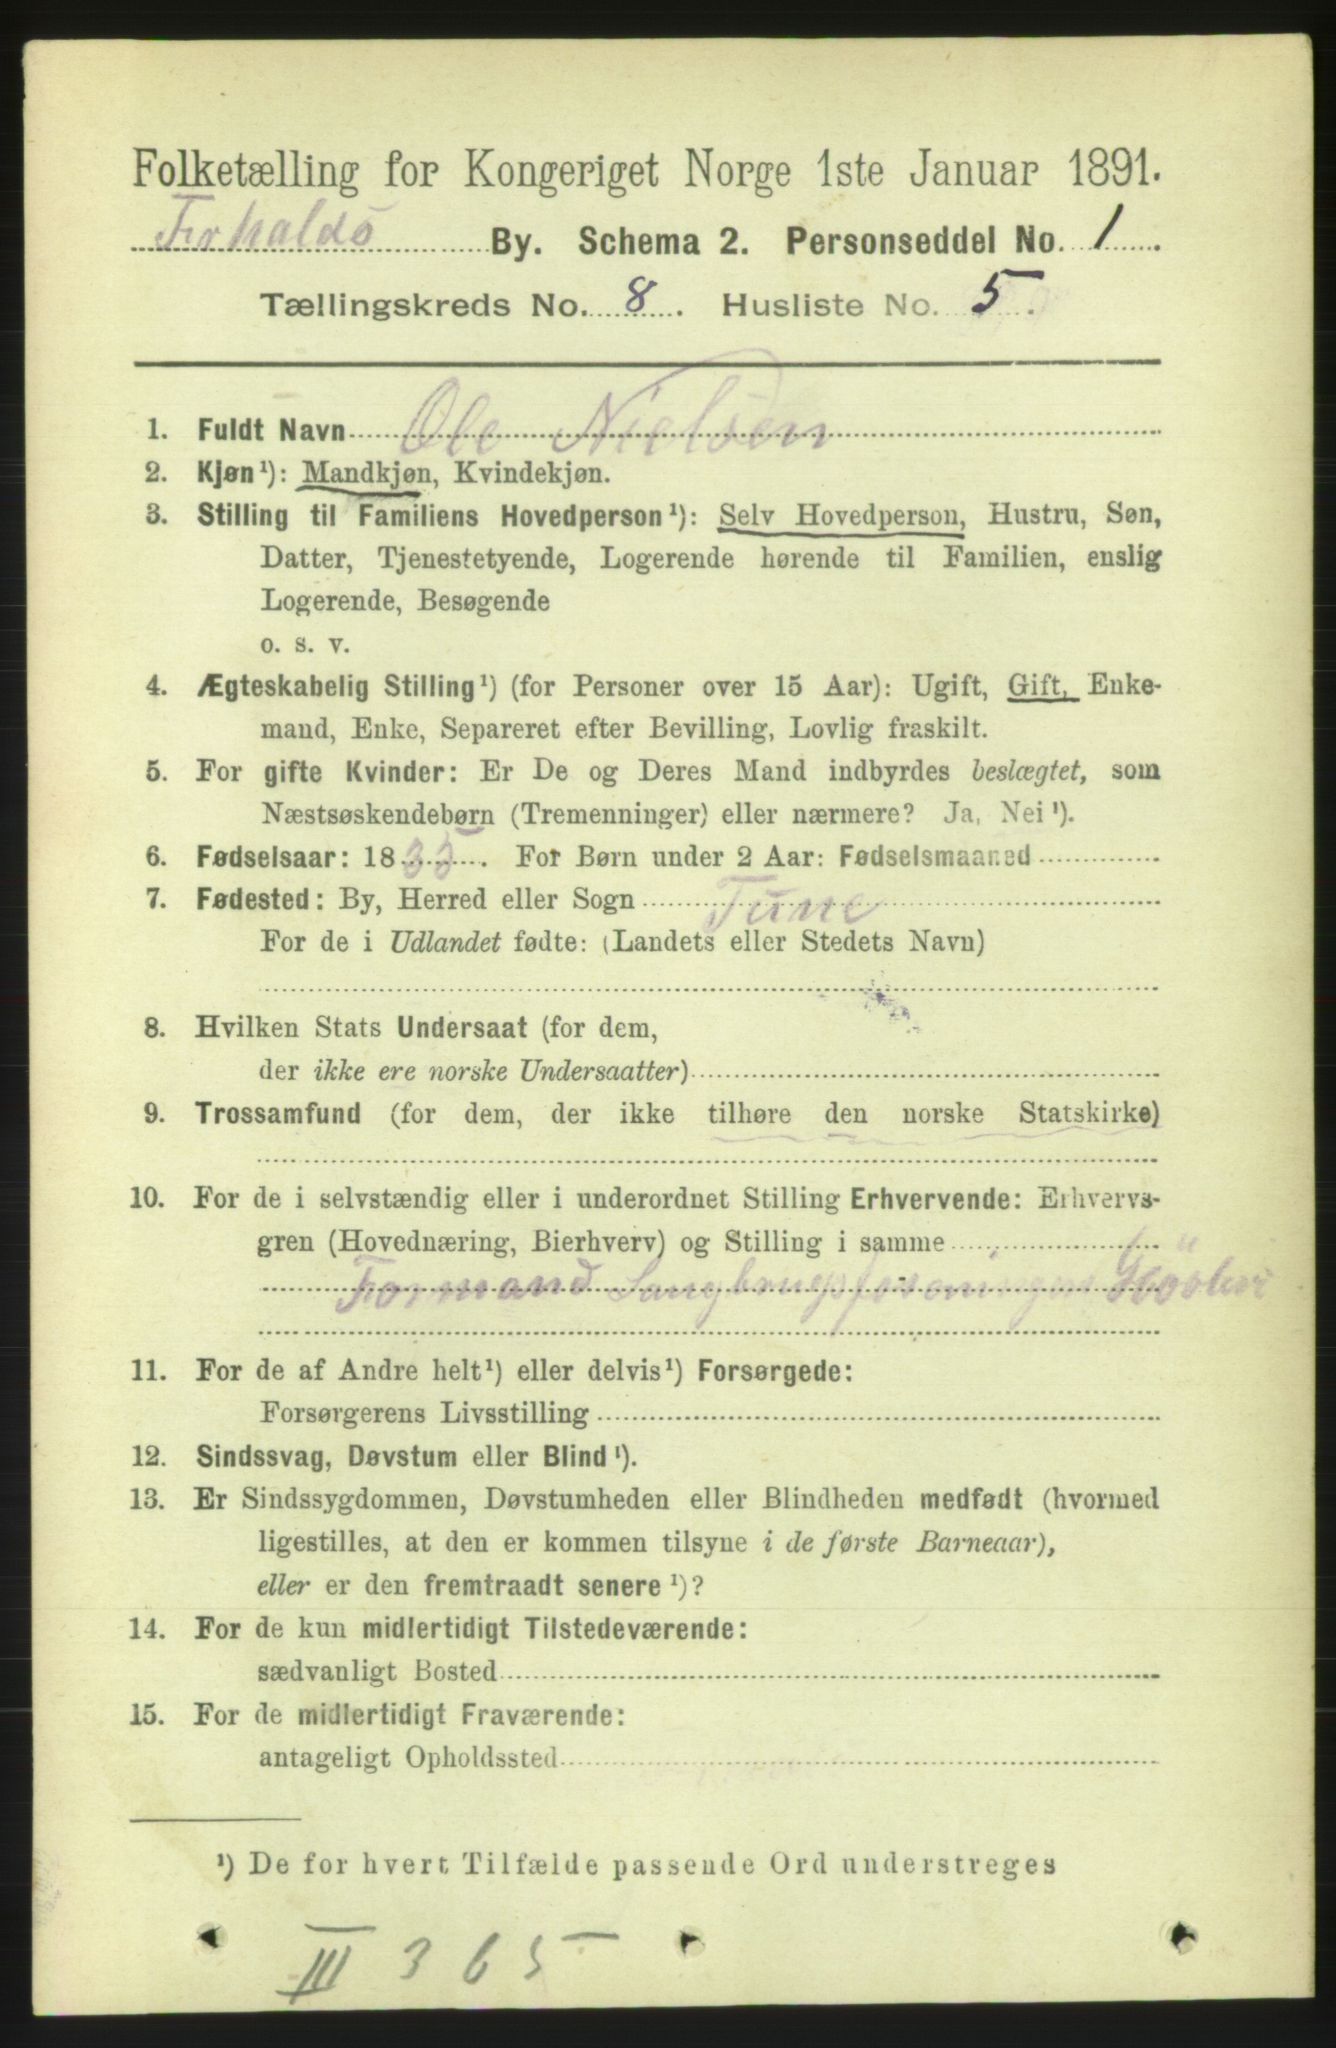 Folketælling for Kongeriget Norge 1ste Januar 1891.
By. Schema 2. Personseddel No. 1.
Tællingskreds No. 8. Husliste No. 5.
1. Fuldt Navn Ole Nielsen
2. Kjøn¹): Mandkjøn, Kvindekjøn.
3. Stilling til Familiens Hovedperson¹): Selv Hovedperson, Hustru, Søn,
Datter, Tjenestetyende, Logerende hørende til Familien, enslig
Logerende, Besøgende
o. s. v.
4. Ægteskabelig Stilling¹) (for Personer over 15 Aar): Ugift, Gift, Enke-
mand, Enke, Separeret efter Bevilling, Lovlig fraskilt.
5. For gifte Kvinder: Er De og Deres Mand indbyrdes beslægtet, som
Næstsøskendebørn (Tremenninger) eller nærmere? Ja, Nei¹).
6. Fødselsaar: 1835. For Børn under 2 Aar: Fødselsmaaned
7. Fødested: By, Herred eller Sogn Tune
For de i Udlandet fødte: (Landets eller Stedets Navn)
8. Hvilken Stats Undersaat (for dem,
der ikke ere norske Undersaatter)
9. Trossamfund (for dem, der ikke tilhøre den norske Statskirke)
10. For de i selvstændig eller i underordnet Stilling Erhvervende: Erhvervs-
gren (Hovednæring, Bierhverv) og Stilling i samme
Formand
11. For de af Andre helt¹) eller delvis¹) Forsørgede:
Forsørgerens Livsstilling
12. Sindssvag, Døvstum eller Blind¹).
13. Er Sindssygdommen, Døvstumheden eller Blindheden medfødt (hvormed
ligestilles, at den er kommen tilsyne i de første Barneaar),
eller er den fremtraadt senere¹)?
14. For de kun midlertidigt Tilstedeværende:
sædvanligt Bosted
15. For de midlertidigt Fraværende:
antageligt Opholdssted
¹) De for hvert Tilfælde passende Ord understreges
III 365